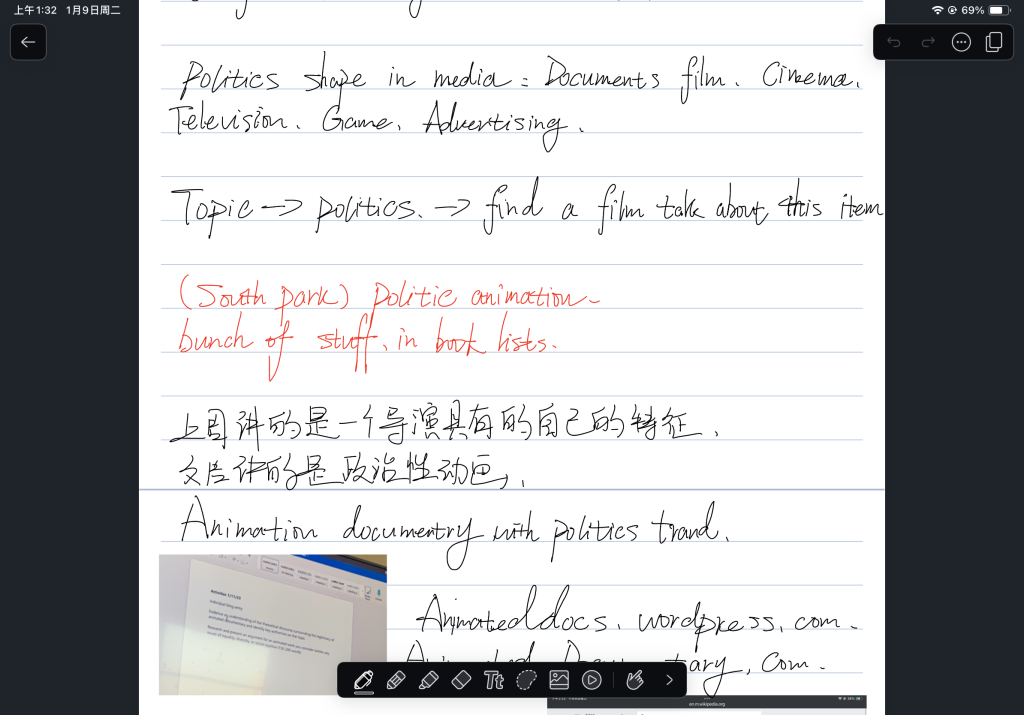 上午1:32 1月9日周二
69%
Politics shape in media: Documents film. Cinema.
Television. Game. Advertising.
Topic → politics. → find a film talk about this item
(South park) politic animation.
bunch of stuff. in book lists.
上周讲的是一个导演具有的自己的特征.
讲的是政治性动画,.
Animation documentry with politics trand.
Animateddocs. wordpress. com.
Tt
en.m.wikipedia.org